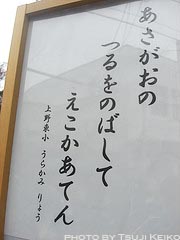 あさがおの
つるをのばして
えこかあてん
上野東小
うらかみ りょう
PHOTO BY TSUJI KEIKO